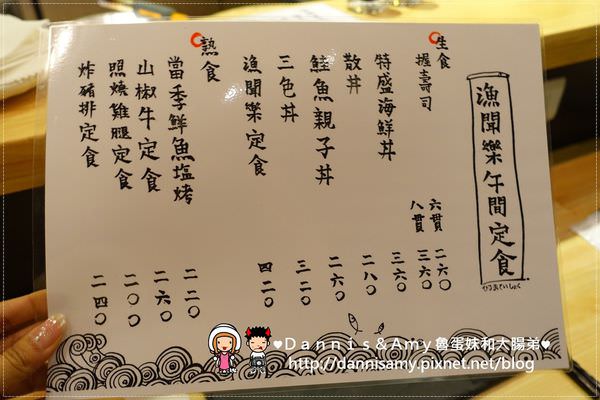 漁聞樂午間定食
生食
握壽司 六貫 二六〇
八貫 三六〇
特盛海鮮丼 三六〇
散丼 二八〇
鮭魚親子丼 二六〇
三色丼 三二〇
漁聞樂定食 四二〇
熟食
當季鮮魚塩烤 二二〇
山椒牛定食 二六〇
照燒雞腿定食 二〇〇
炸豬排定食 二四〇
♥Dannis&Amy魯蛋妹和大腸弟♥
http://dannisamy.pixnet.net/blog